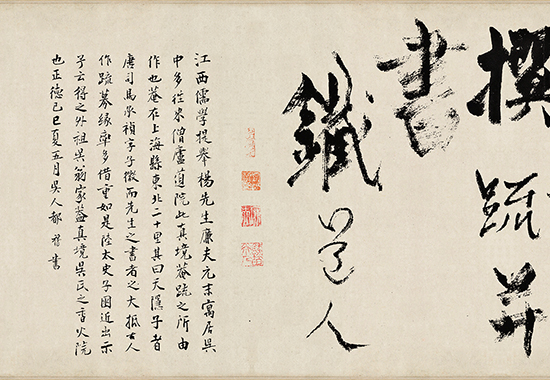 撰疏并
書
鐵心道人
江西儒學提舉楊先生廉夫元末寓居吳
中多往來僧廬道院此真境菴疏之所由
作也菴在上海縣東北二十里其曰天隱子者
唐司馬承禎字子微而先生之書者之大抵古人
作疏募緣率多借重如是陸太史子囦近出示
予云得之外祖吳翁家蓋真境吳氏之香火院
也正德己巳夏五月吳人都穆書